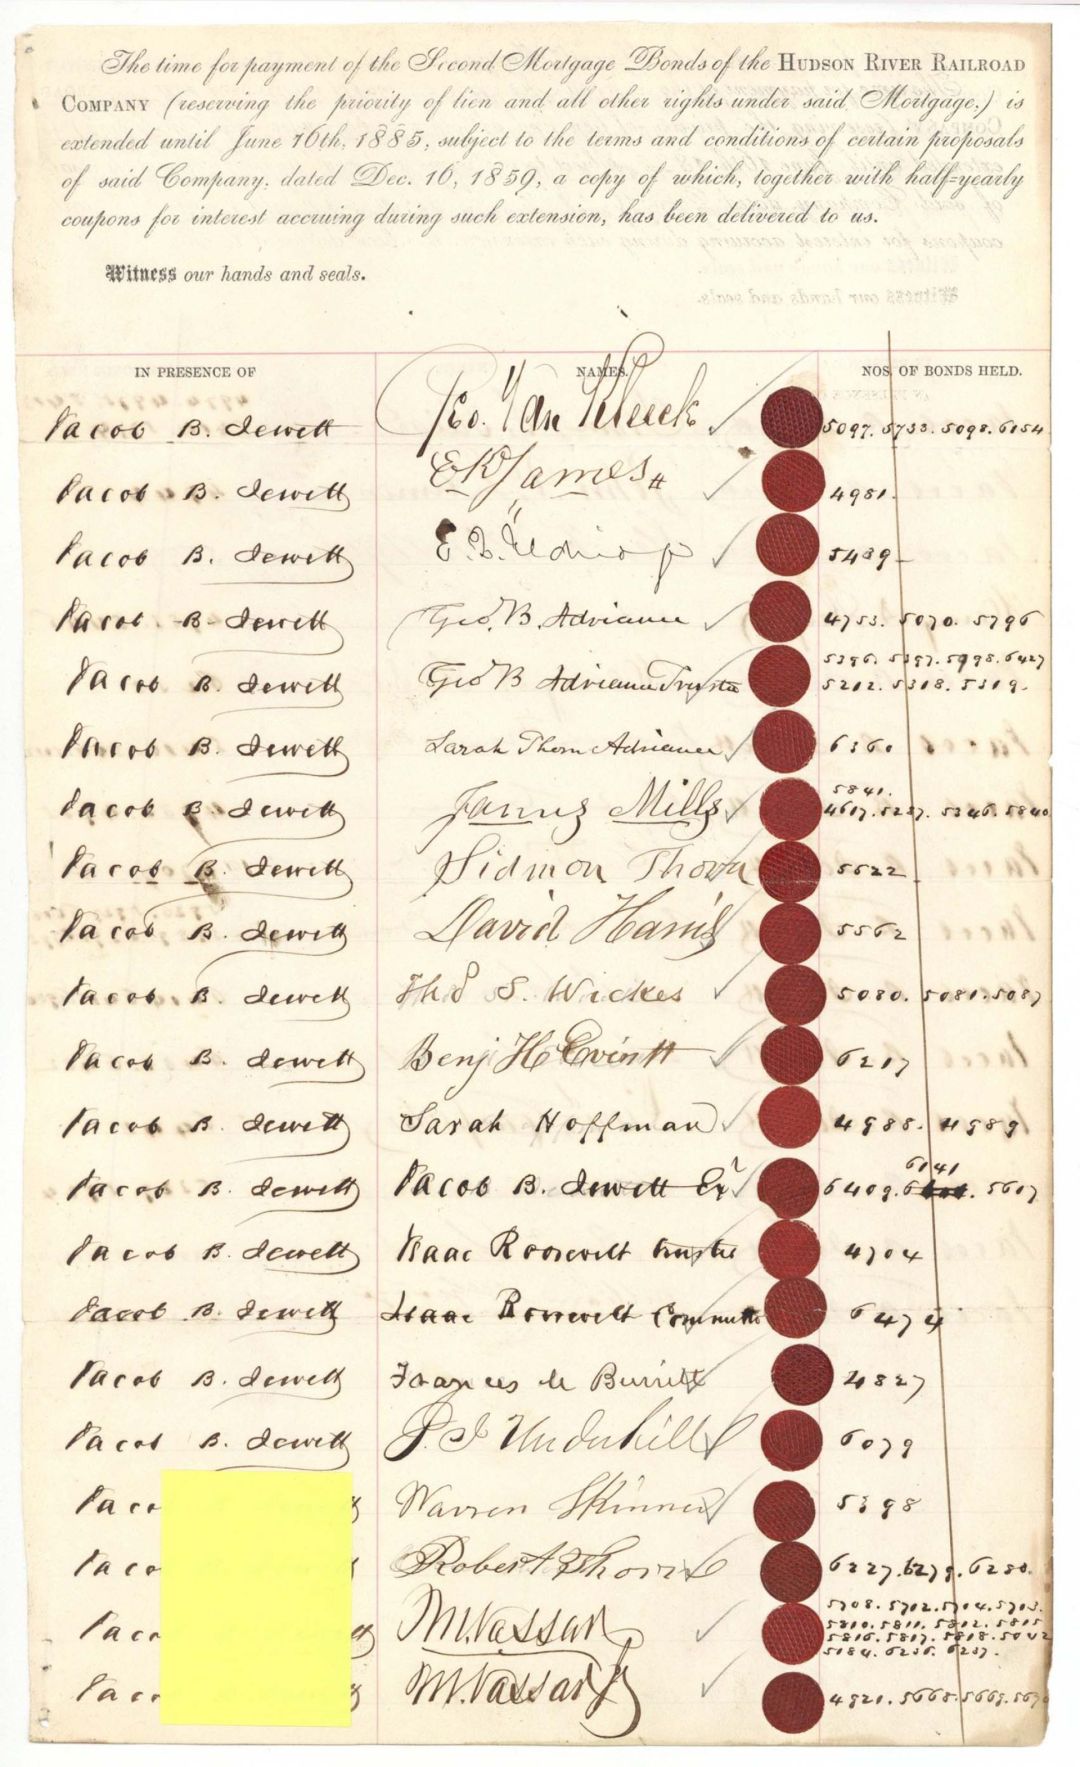 The time for payment of the Second Mortgage Bonds of the HUDSON RIVER RAILROAD
COMPANY (reserving the priority of lien and all other rights under said Mortgage,) is
extended until June 16th, 1885, subject to the terms and conditions of certain proposals
of said Company, dated Dec. 16, 1859, a copy of which, together with half-yearly
coupons for interest accruing during such extension, has been delivered to us.
Witness our hands and seals.
IN PRESENCE OF NAMES. NOS. OF BONDS HELD.
Jacob B. Jewett Van Kleeck 5097. 5733. 5098. 6154
Jacob B. Jewett E K James 4981.
Jacob B. Jewett 5489
Jacob B. Jewett Geo. B. Adriance 4753. 5070. 5796
5396. 5397. 5998. 6427
Jacob B. Jewett Geo B Adriance Trustee 5212. 5318. 5319.
Jacob B. Jewett Sarah Thorn Adriance 6360
5841.
Jacob B. Jewett James Mills 4617. 5237. 5346. 5840
Jacob B. Jewett Sidmon Thorn 5622
Jacob B. Jewett David Harris 5562
Jacob B. Jewett S. Wickes 5080. 5081. 5087
Jacob B. Jewett Benj H Everitt 6217
Jacob B. Jewett Sarah Hoffman 4988. 4989
6141
Jacob B. Jewett Jacob B. Jewett Exr 6409. 5607
Jacob B. Jewett Isaac Roosevelt trustee 4704
Jacob B. Jewett Isaac Roosevelt Committee 6474
Jacob B. Jewett Frances de Burritt 4827
Jacob B. Jewett Underhill 6079
Jaco Warren Skinner 5398
Jaco Robert Thorn 6227. 6279. 6280.
5708. 5702. 5704. 5703.
5810. 5811. 5812. 5815
Jaco M. Vassar 5816. 5817. 5818. 5042
5184. 6236. 6237.
Jaco M. Vassar Jr 4821. 5668. 5669. 567